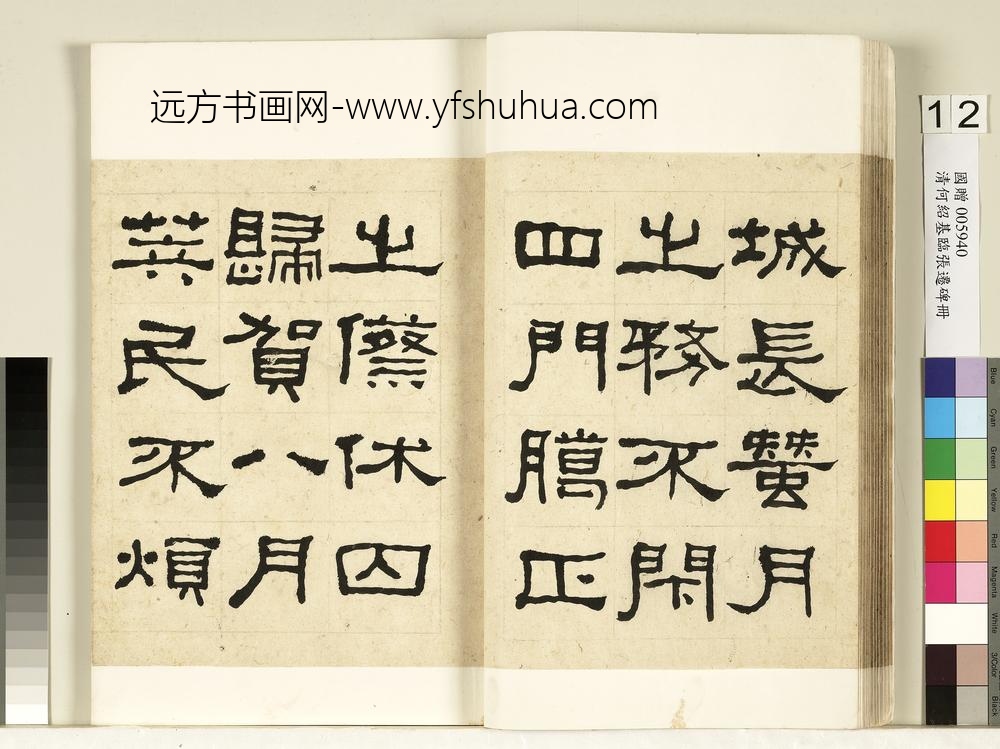 远方书画网-www.yfshuhua.com
城長蠶月
之務不閉
四門臘正
之僚休囚
歸賀八月
筭民不煩
12
國贈 005940
清何紹基臨張遷碑冊
Blue
Cyan
Green
Yellow
Red
Magenta
White
3/Color
Black